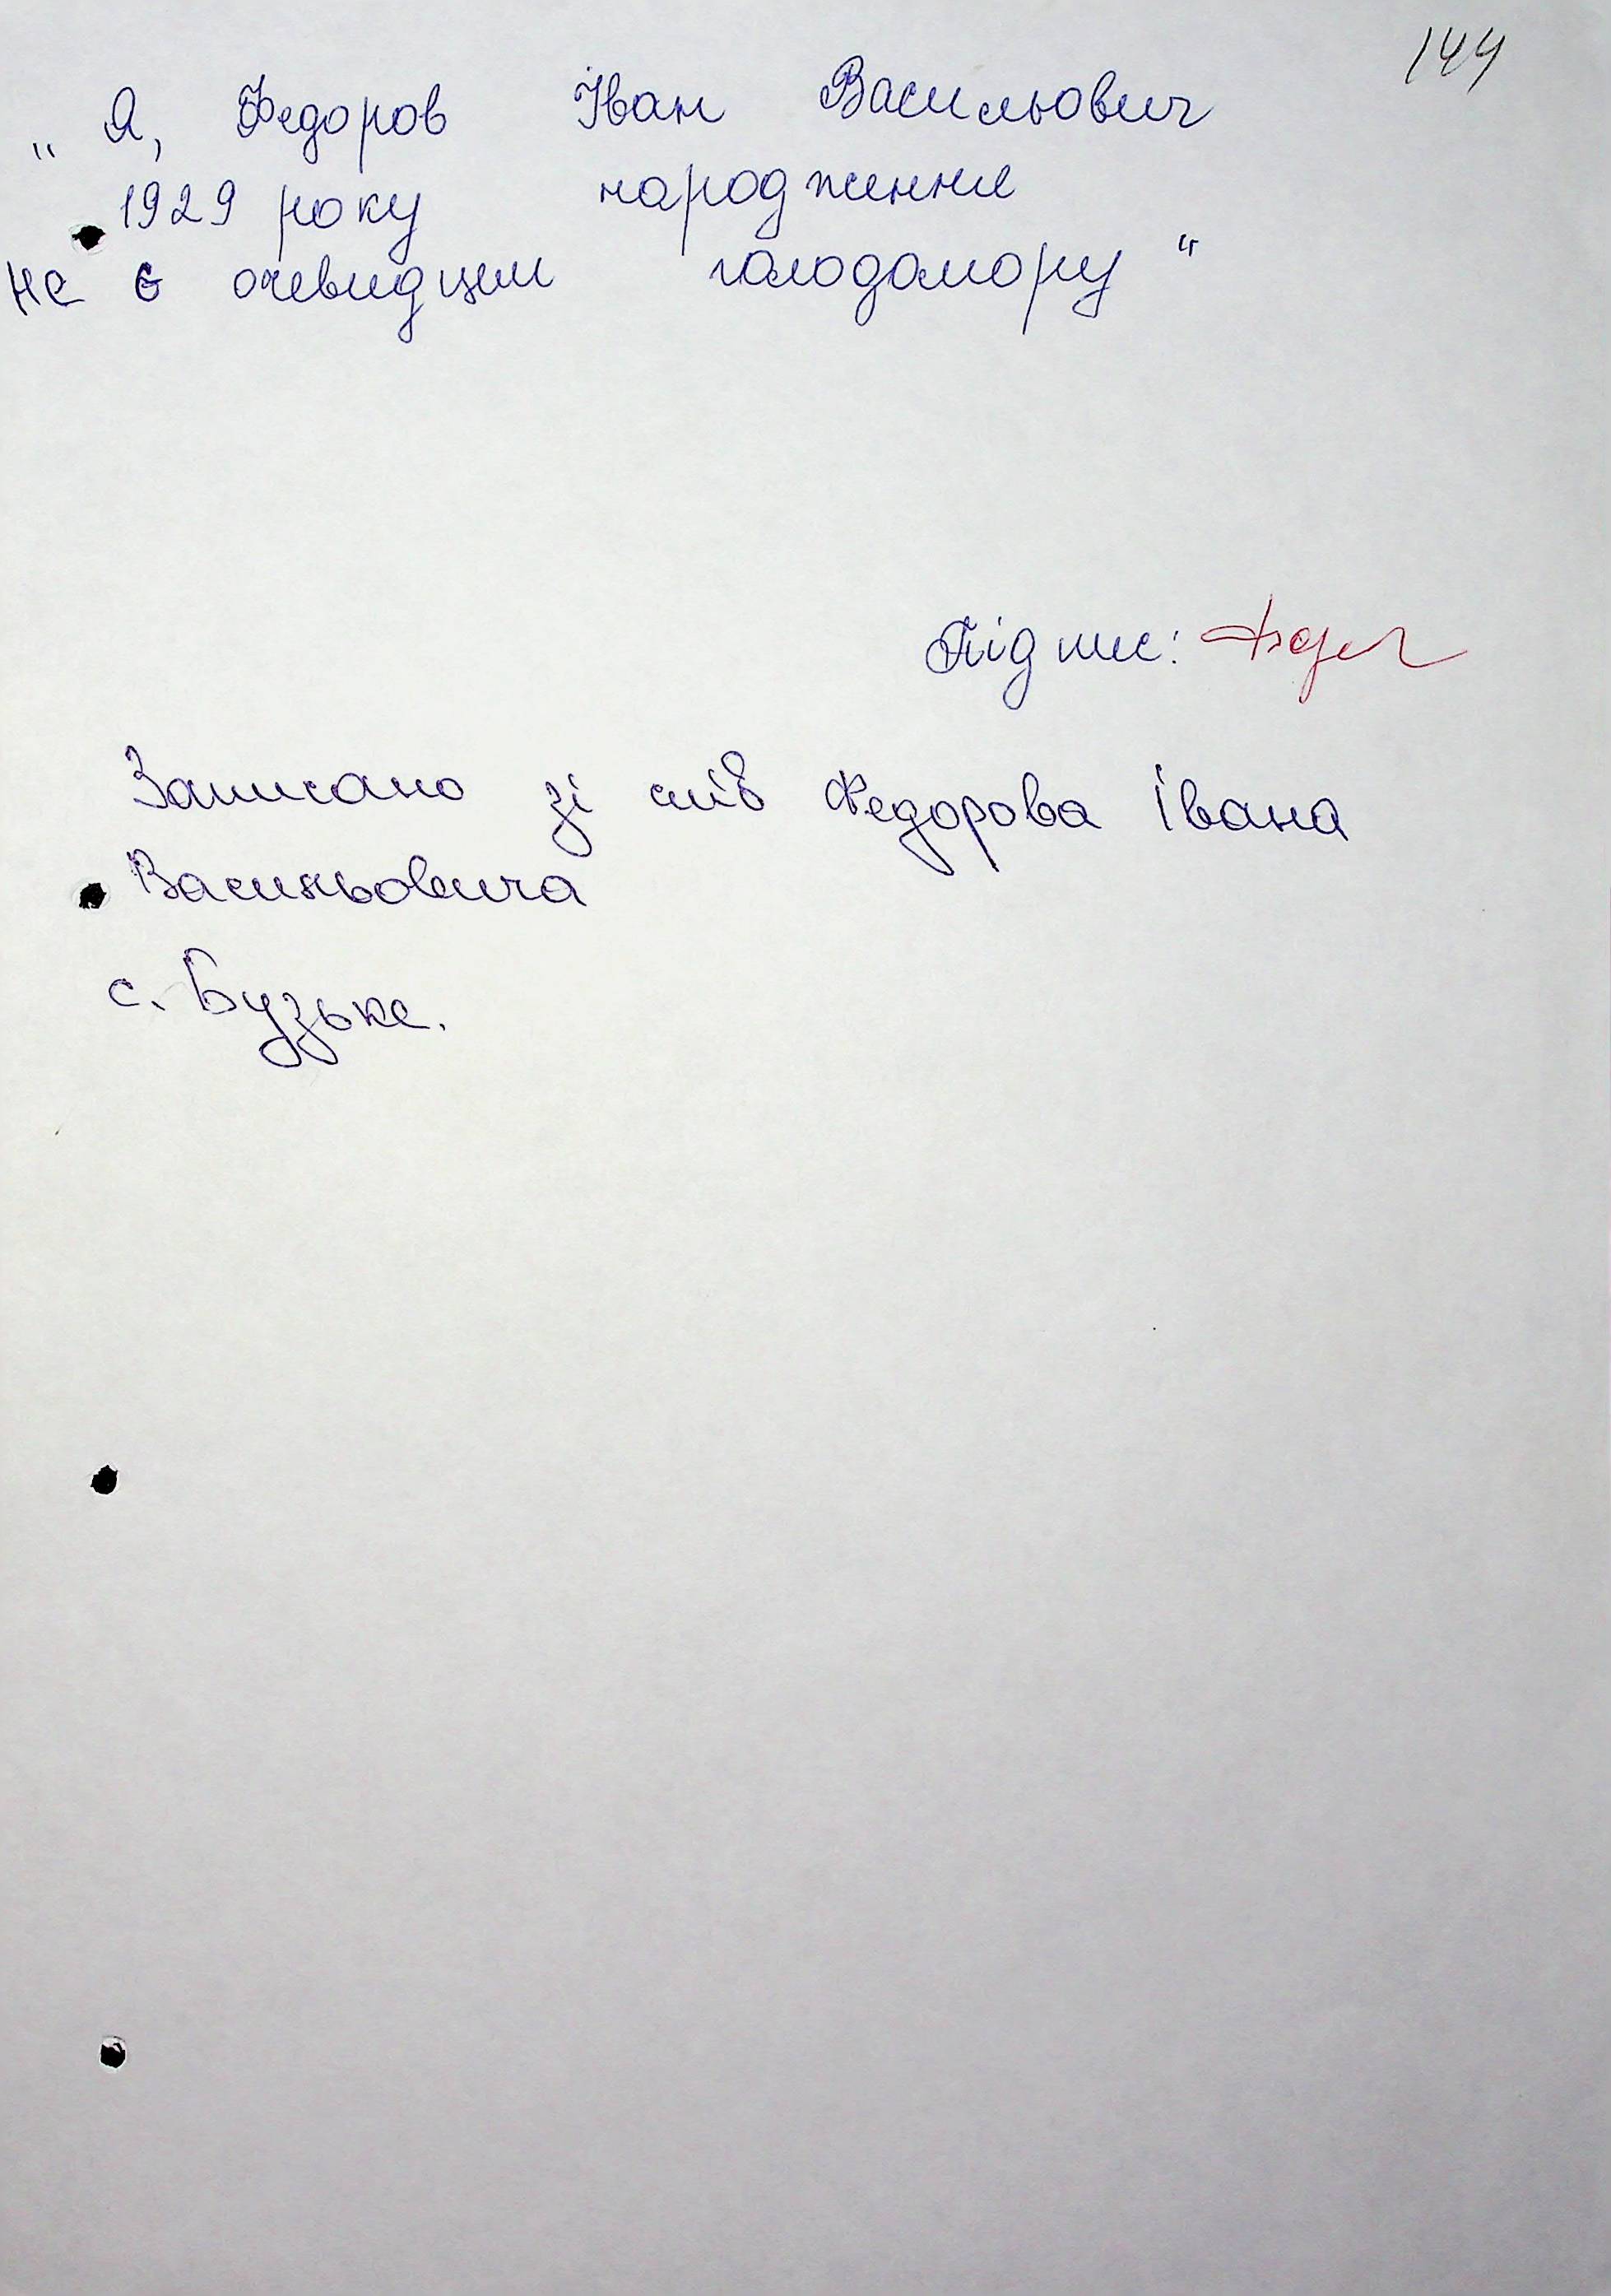 144
„Я, Федоров Іван Васильович
1929 року народження
не є очевидцем голодомору“
Підпис:
Записано зі слів Федорова Івана
Васильовича
с. Бузьке.